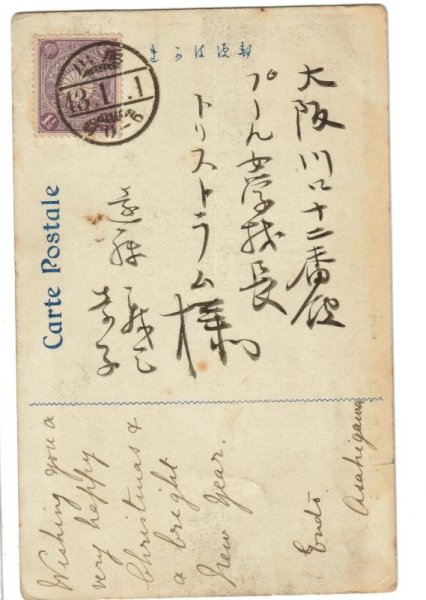 郵便はかき
43.1.1
Carte Postale
大阪川口十二番館
プール女学校長
トリストラム様
遠藤
Wishing you a
very happy
Christmas &
a bright
New Year.
Endo
Asahigawa